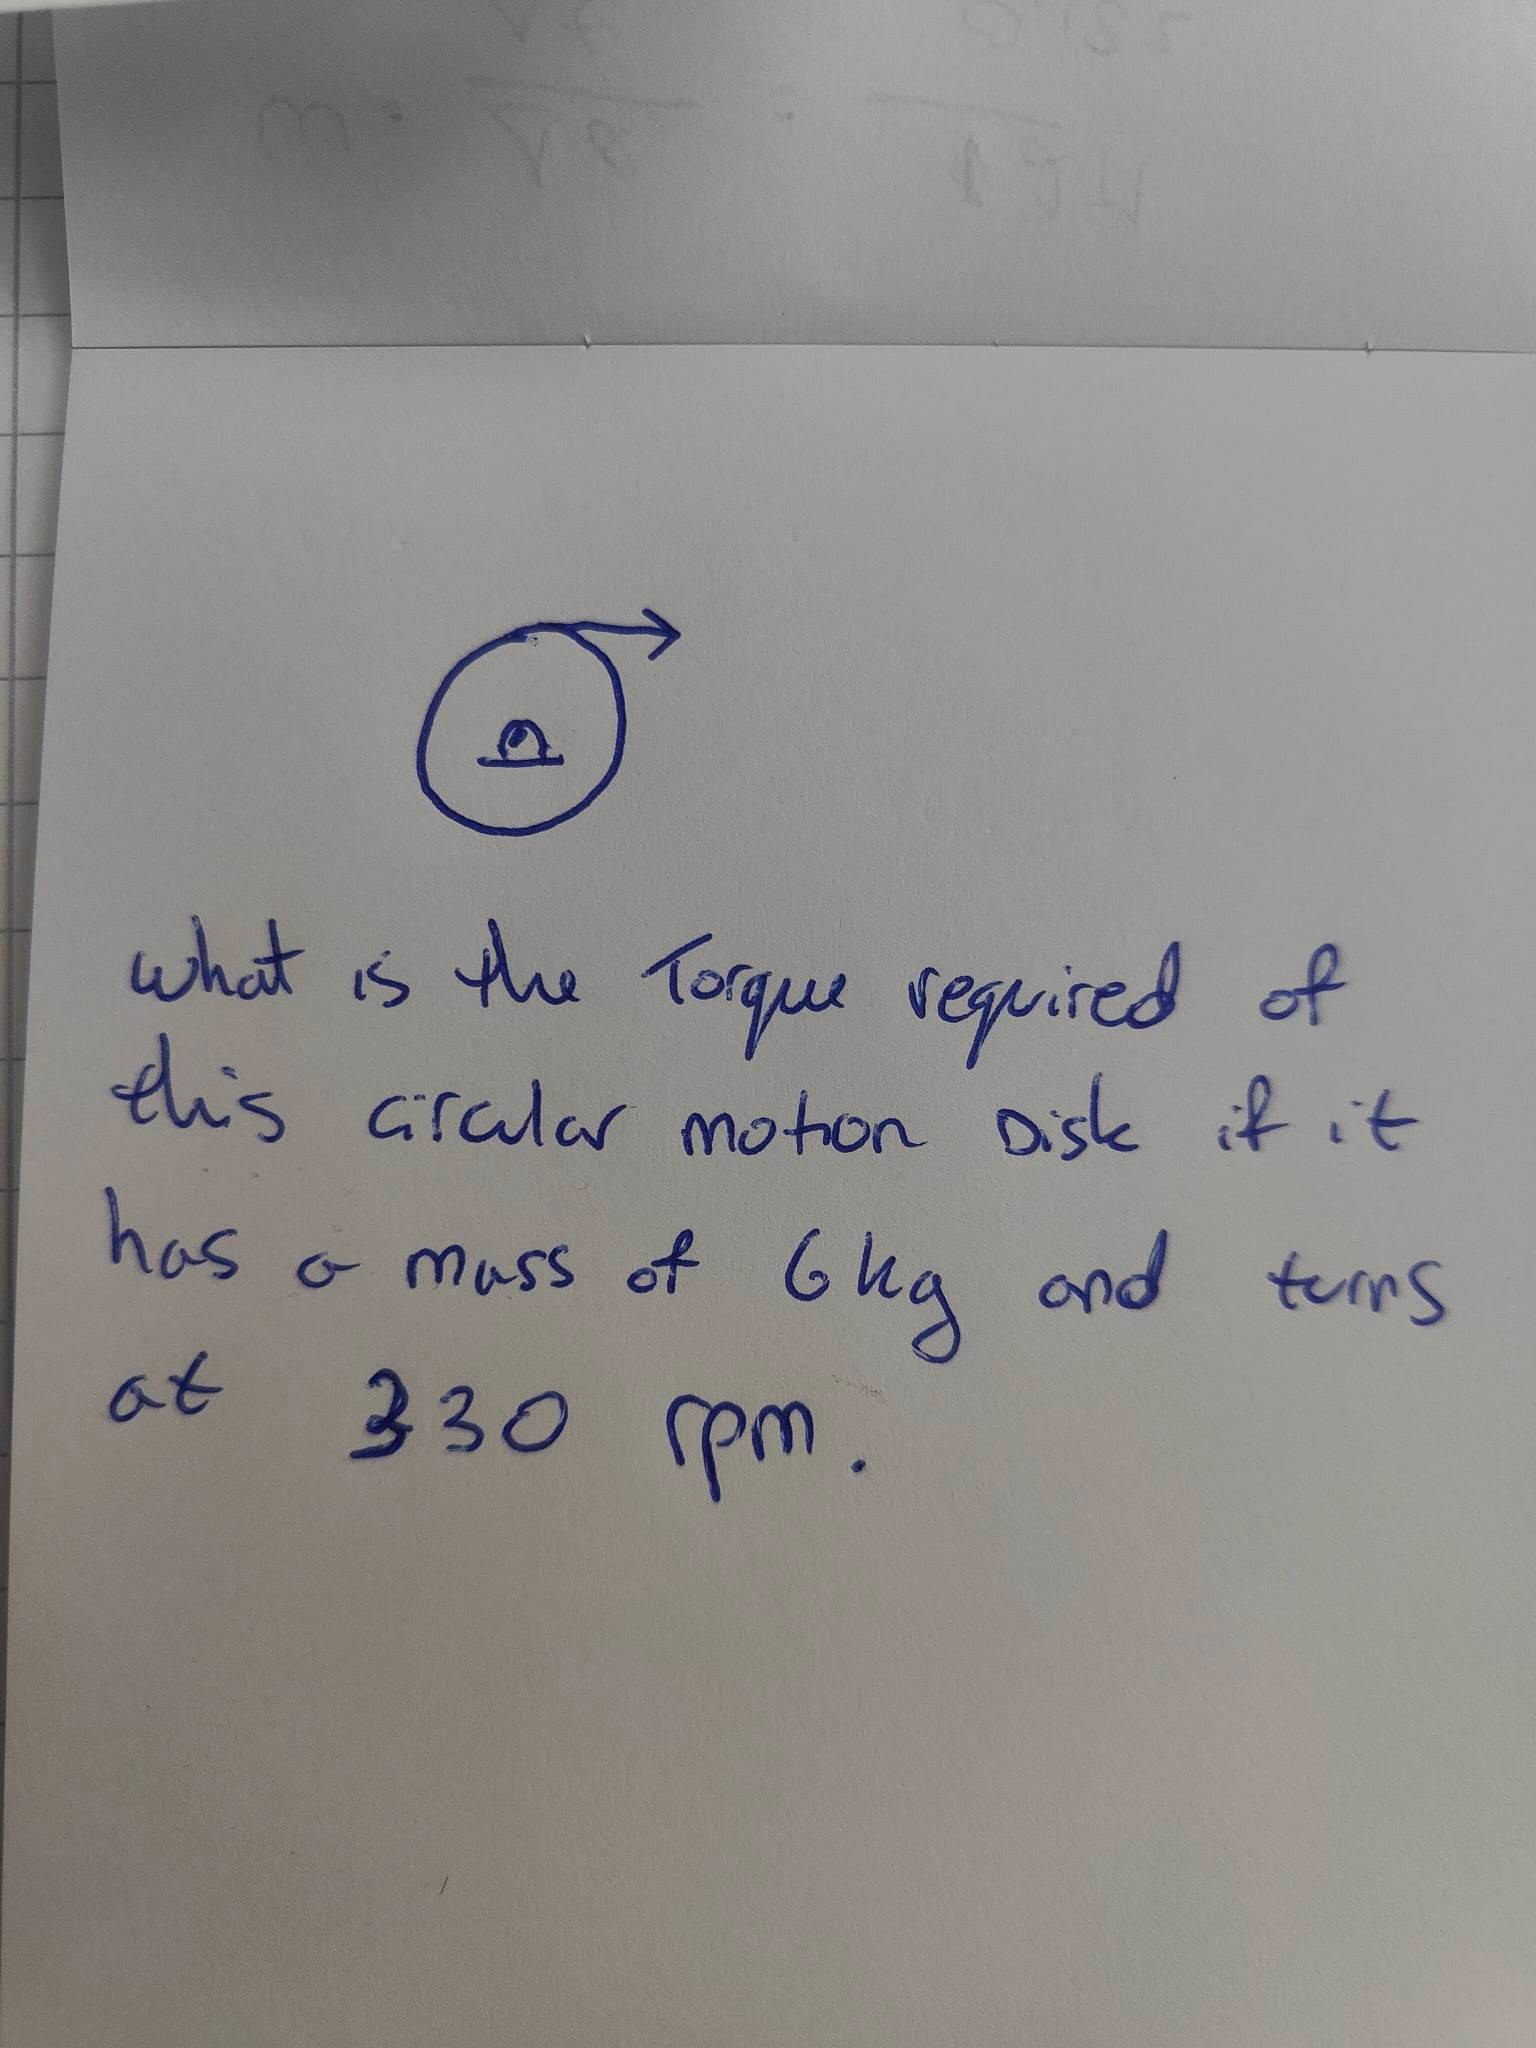 What is the Torque required of
this circular motion Disk if it
has a mass of 6kg and turns
at 330 rpm.